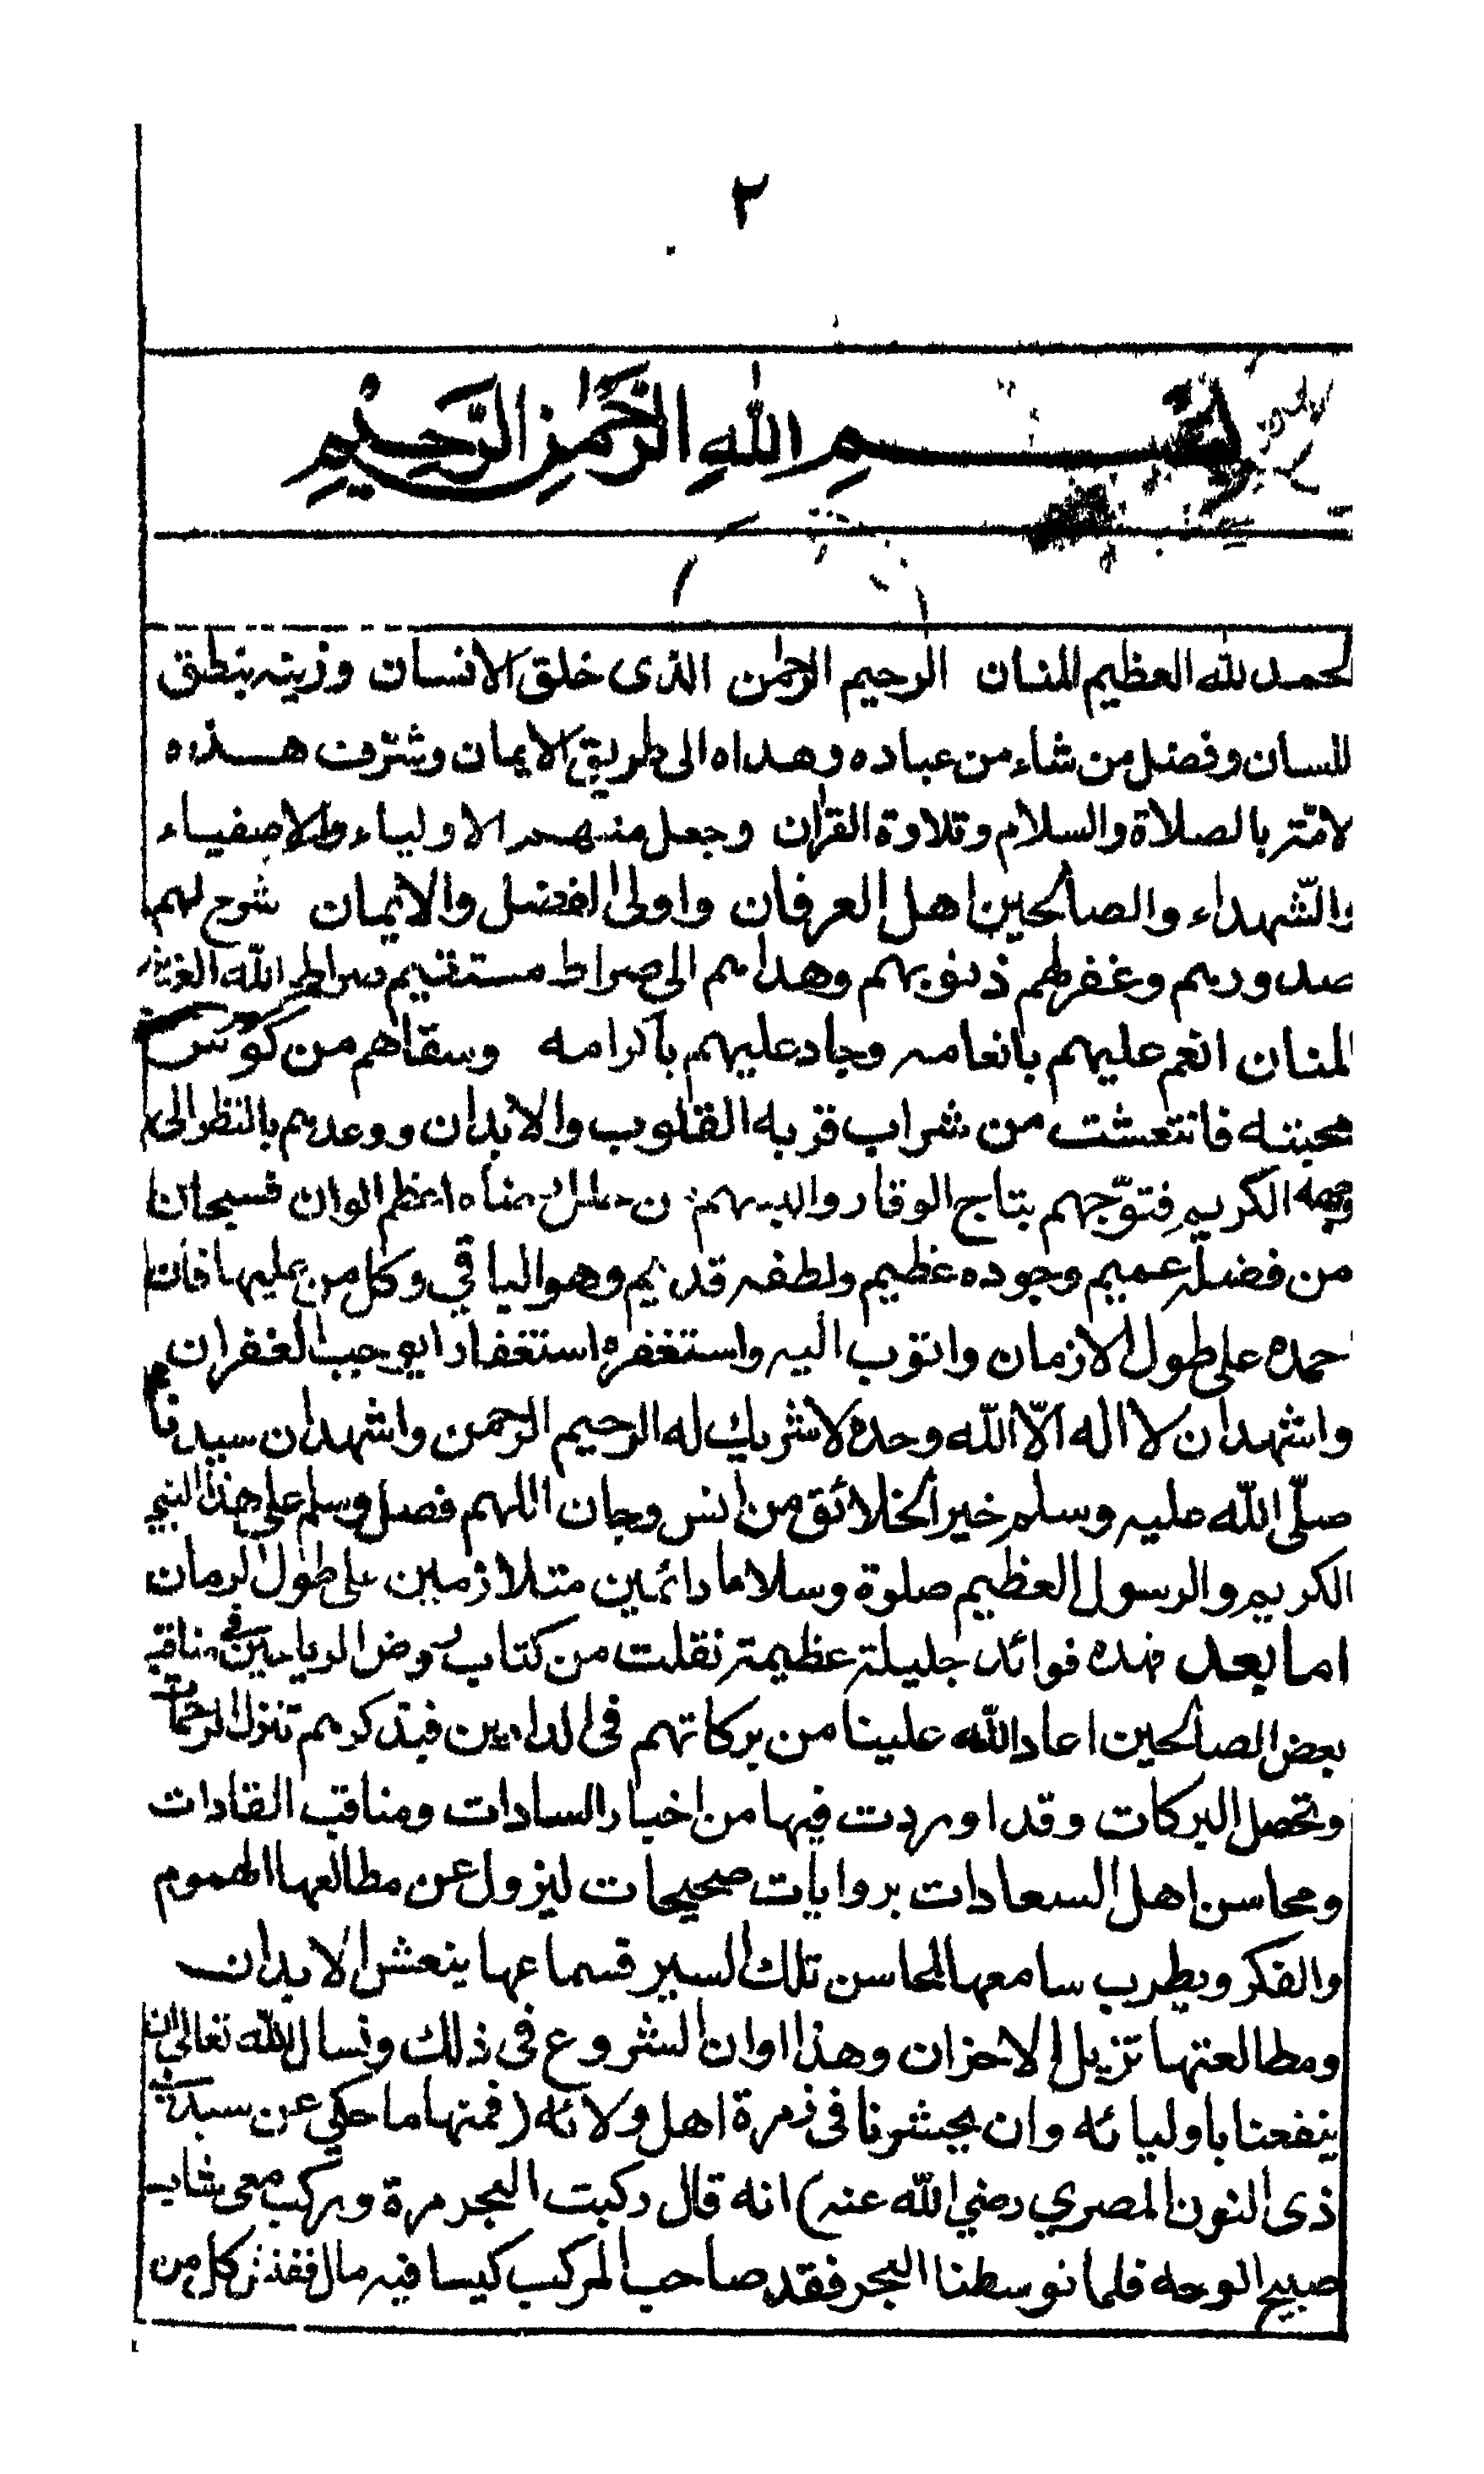 ٢
بسم الله الرحمن الرحيم
الحمد لله العظيم المنان الرحيم الرحمن الذى خلق الانسان وزينه بنطق
للسان وفضل من شاء من عباده وهداه الى طريق الايمان وشرف هذه
لامة بالصلاة والسلام وتلاوة القرآن وجعل منهم الاولياء والاصفياء
والشهداء والصالحين اهل العرفان واولى الفضل والايمان شرح لهم
صدورهم وغفر لهم ذنوبهم وهداهم الى صراط مستقيم صراط الله العزيز
المنان انعم عليهم بانعامه وجاد عليهم باكرامه وسقاهم من كوس
محبته فانتعشت من شراب قربه القلوب والابدان ووعدهم بالنظر الى
وجهه الكريم فتوّجهم بتاج الوقار والبسهم من حلل الوان فسبحان
من فضله عميم وجوده عظيم ولطفه قديم وهو الباقي وكل من عليها فان
احمده على طول الازمان واتوب اليه واستغفره استغفارا يوجب الغفران
واشهد ان لا اله الّا الله وحده لا شريك له الرحيم الرحمن واشهد ان سيدنا
صلّى الله عليه وسلم خير الخلائق من انس وجان اللهم فصل وسلم على هذا النبي
الكريم والرسول العظيم صلوة وسلاما دائمين متلازمين على طول الزمان
اما بعد فهذه فوائد جليلة عظيمة نقلت من كتاب روض الرياحين في مناقب
بعض الصالحين اعاد الله علينا من بركاتهم فى الدارين فبذكرهم تنزل الرحمات
وتحصل البركات وقد اوردت فيها من اخبار السادات ومناقب القادات
ومحاسن اهل السعادات بروايات صحيحات ليزول عن مطالعها الهموم
والفكر ويطرب سامعها لمحاسن تلك السير فسماعها ينعش الابدان
ومطالعتها تزيل الاحزان وهذا اوان الشروع فى ذلك ونسال الله تعالى ان
ينفعنا باوليائه وان يحشرنا فى زمرة اهل ولائه (فمنها ما حكي عن سيدى
ذى النون المصري رضي الله عنه) انه قال ركبت البحر مرة وركب معى شاب
صبيح الوجه فلما توسطنا البحر فقد صاحب المركب كيسا فيه مال ففتش كل من